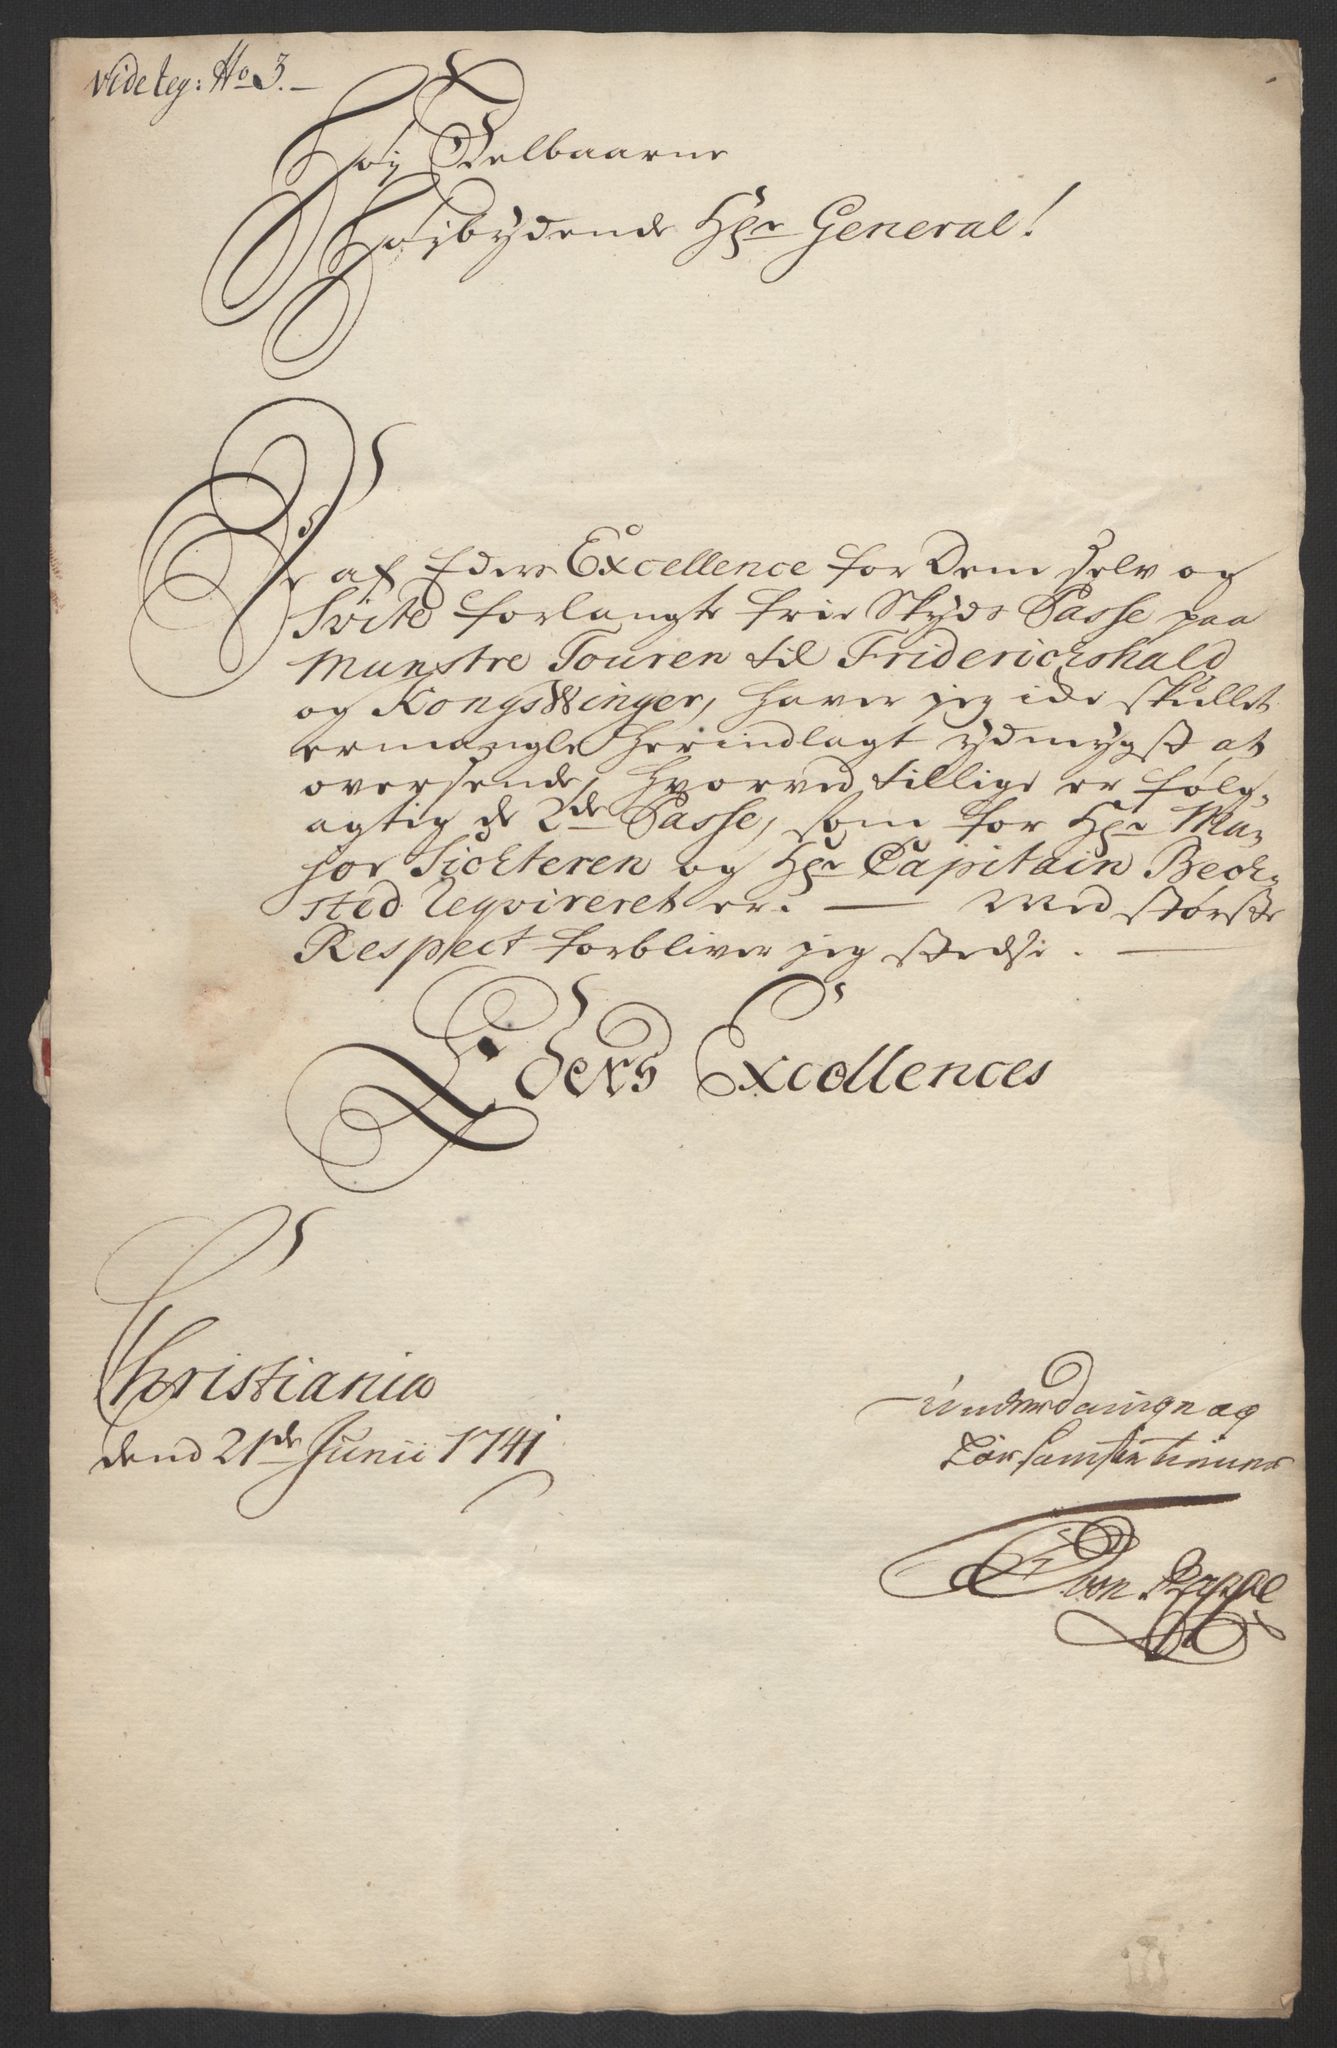 Vide Reg: No 3.
Høy Edelbaarne
Høybydende Hr General!
De af Eders Excellence for Dem selv og
Svite forlangte frie Skyds Passe paa
Munstre Touren til Friderichshald
og KongsWinger, haver jeg icke skullet
ermangle herindlagt ydmygst at
oversende, hvorved tillige er følg-
agtig de 2de Passe, som for Hr Ma-
jor Sichteren og Hr Capitain Bech-
sted Reqvireret er. — Med største
Respect forbliver jeg stedse. —
Eders Excellences
Christiania
dend 21de Junii 1741
underdanige og
hørsamste tiener
von Rappe